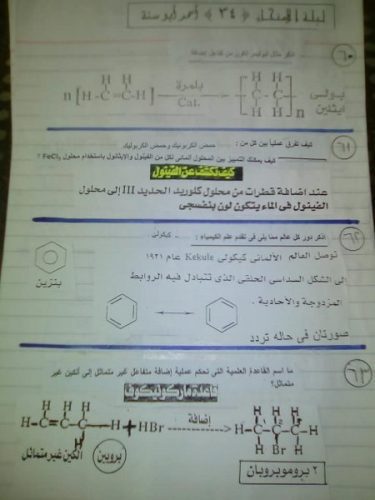 ليلة الامتحان ﴿ ٣٤ ﴾ أحمد أبو سنة
٦٠ اذكر مثال لبوليمر تكون من تفاعل إضافة
n [ H - C = C - H ] بلمرة Cat. [ - C - C - ] n بولى ايثلين
H H H H H H
٦١ كيف تفرق عملياً بين كل من : حمض الكربونيك وحمض الكربوليك
كيف يمكنك التمييز بين المحلول المائى لكل من الفينول والايثانول باستخدام محلول FeCl3 ؟
كيف تكشف عن الفينول
عند اضافة قطرات من محلول كلوريد الحديد III إلى محلول
الفينول فى الماء يتكون لون بنفسجى
٦٢ اذكر دور كل عالم مما يلى فى تقدم علم الكيمياء : كيكولى
توصل العالم الألمانى كيكولى Kekule عام ١٩٣١
إلى الشكل السداسى الحلقى الذى تتبادل فيه الروابط
بنزين
المزدوجة والاحادية .
صورتان فى حاله تردد
٦٣ ما اسم القاعدة العلمية التى تحكم عملية إضافة متفاعل غير متماثل إلى ألكين غير
متماثل؟
قاعدة ماركونيكوف
H H H H H
H-C=C-C-H + HBr إضافة H-C¹-C²-C³-H
H H Br H
الكين غير متماثل بروبين ٢ بروموبروبان